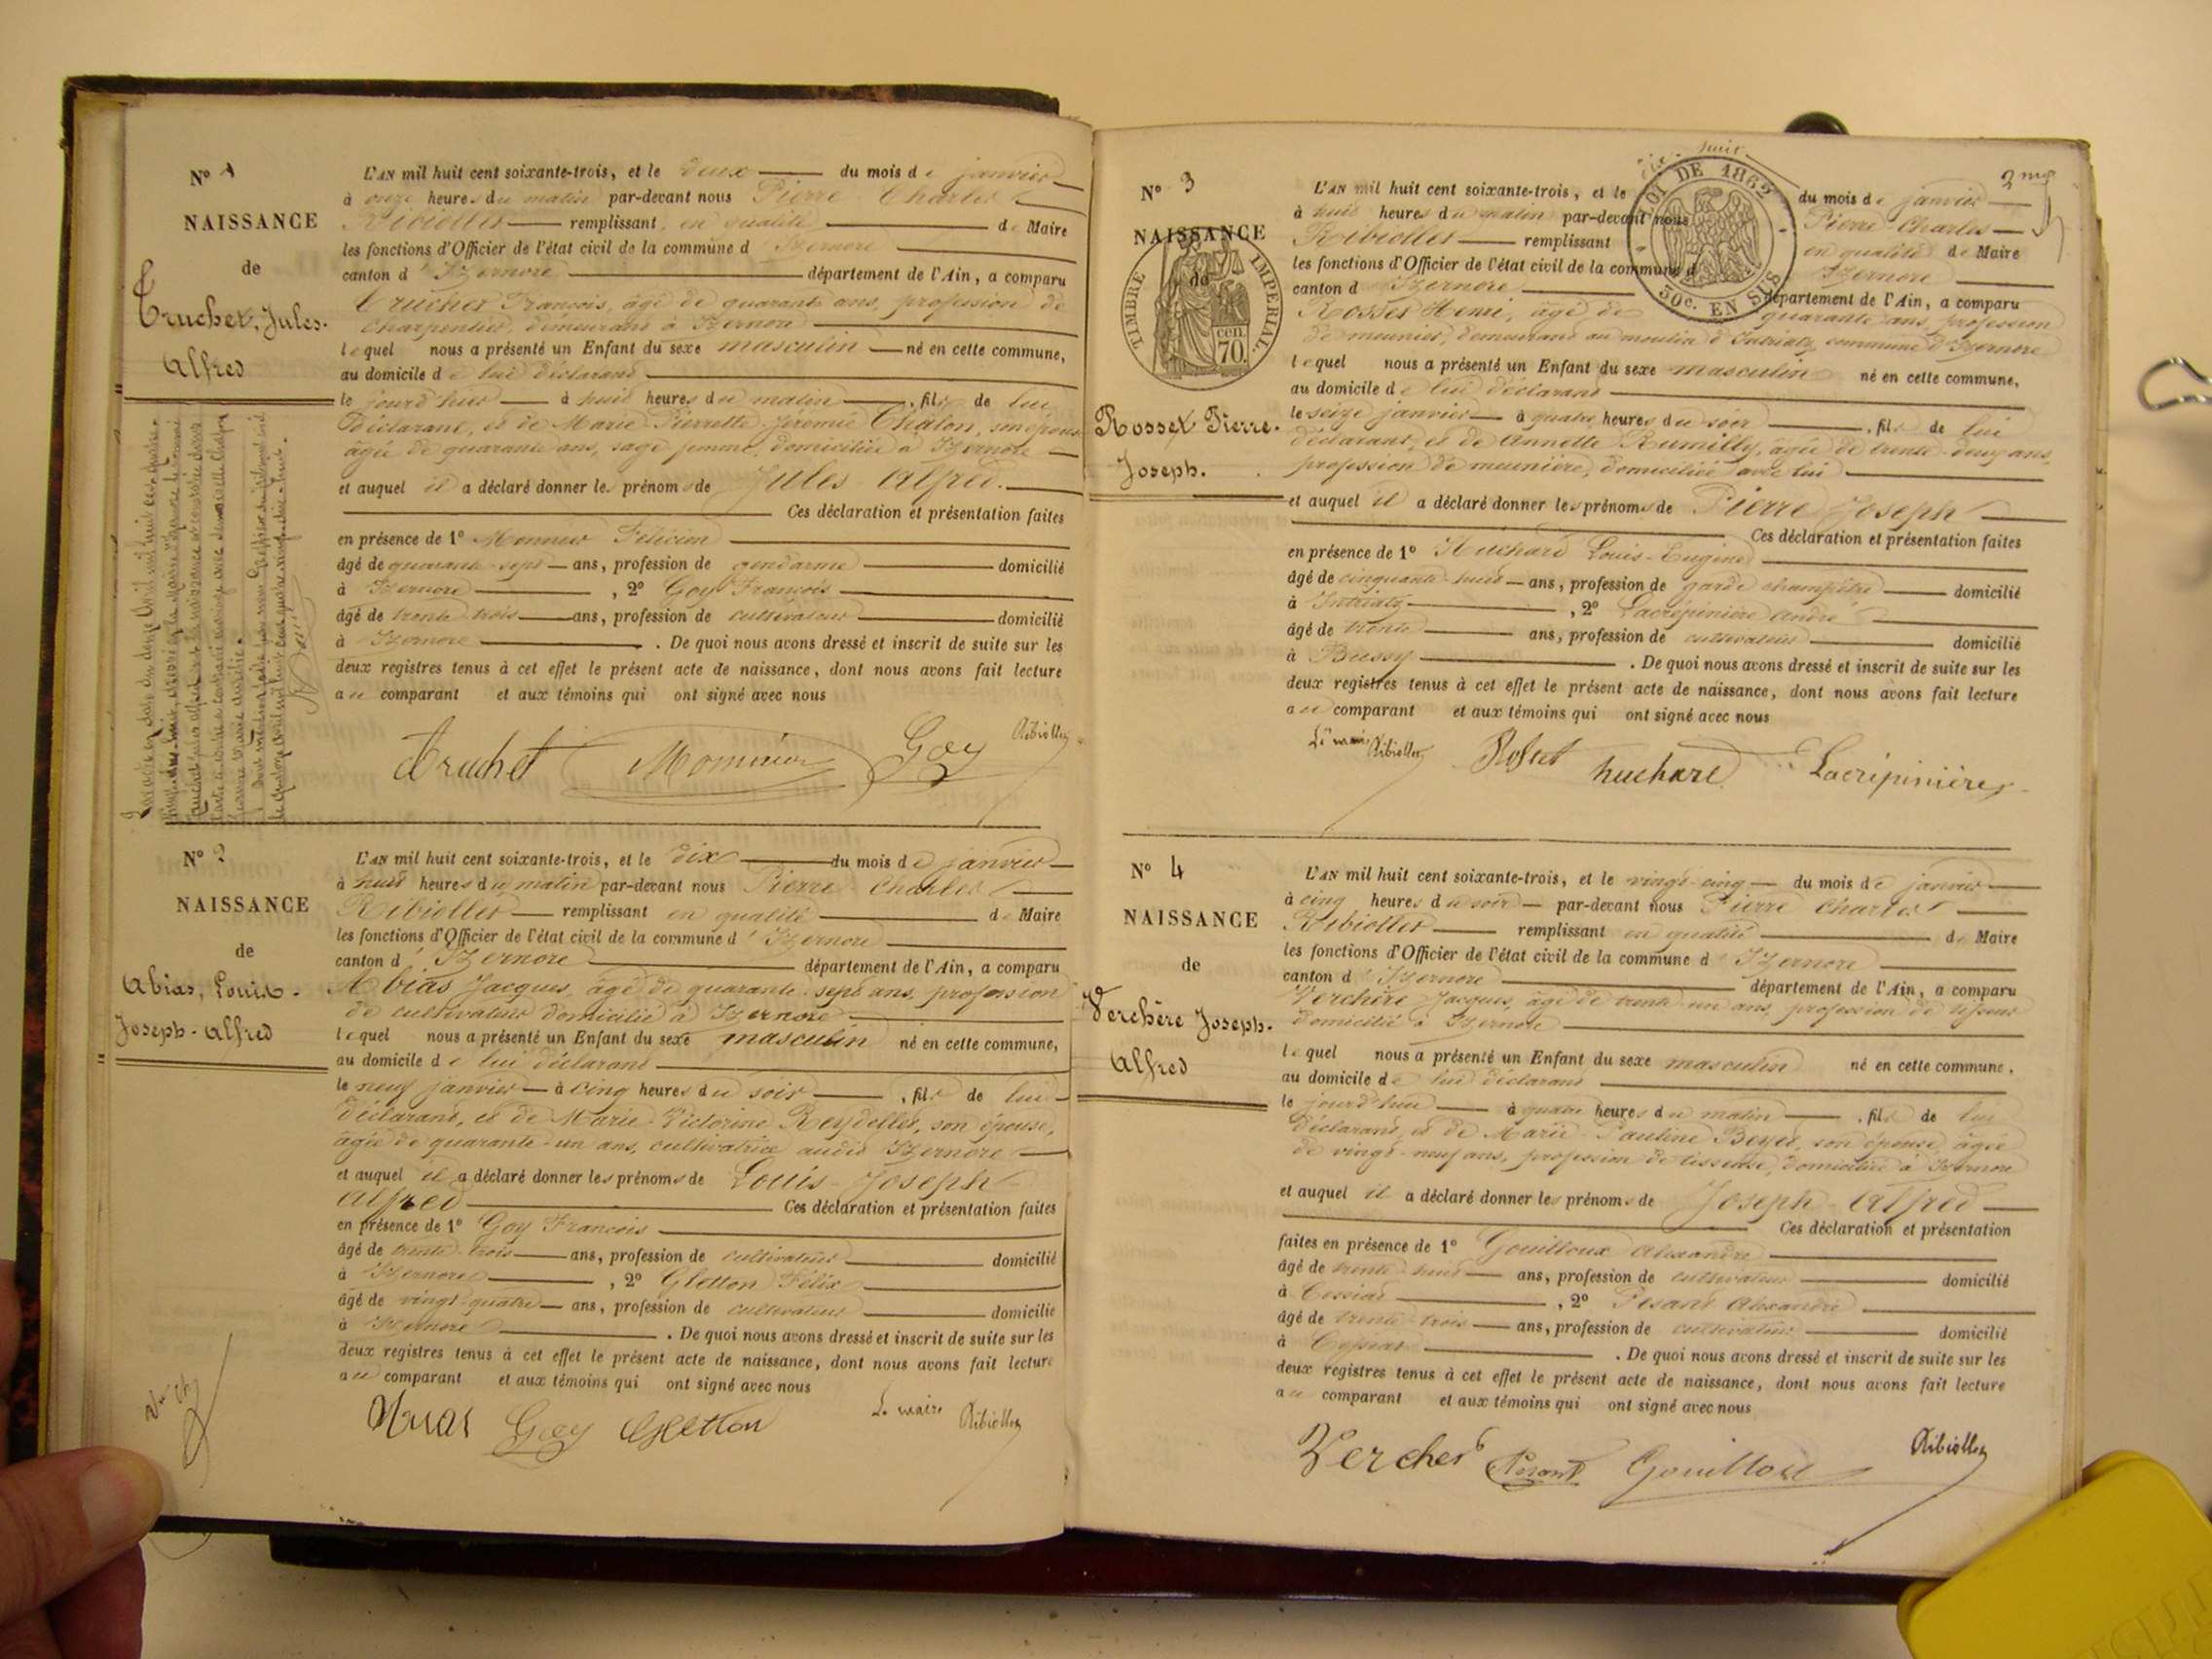 N° 1
NAISSANCE
de
Truchet, Jules-
Alfred
L'AN mil huit cent soixante-trois, et le deux du mois de janvier
à onze heures du matin par-devant nous Pierre Charles
Ribiollet remplissant en qualité de Maire
les fonctions d'Officier de l'état civil de la commune d'Izernore
canton d'Izernore département de l'Ain, a comparu
Truchet François, âgé de quarante ans, profession de
charpentier, demeurant à Izernore
lequel nous a présenté un Enfant du sexe masculin né en cette commune,
au domicile de lui déclarant
le jourd'hier à huit heures du matin, fils de lui
déclarant, et de Marie Pierrette Jérémie Chalon, son épouse
âgée de quarante ans, sage femme, domiciliée à Izernore
et auquel il a déclaré donner les prénoms de Jules Alfred.
Ces déclaration et présentation faites
en présence de 1° Monnier Félicien
âgé de quarante-sept ans, profession de gendarme domicilié
à Izernore, 2° Goy François
âgé de trente trois ans, profession de cultivateur domicilié
à Izernore. De quoi nous avons dressé et inscrit de suite sur les
deux registres tenus à cet effet le présent acte de naissance, dont nous avons fait lecture
au comparant et aux témoins qui ont signé avec nous
Truchet Monnier Goy Ribiollet
N° 2
NAISSANCE
de
Abias, Louis-
Joseph-Alfred
L'AN mil huit cent soixante-trois, et le dix du mois de janvier
à huit heures du matin par-devant nous Pierre Charles
Ribiollet remplissant en qualité de Maire
les fonctions d'Officier de l'état civil de la commune d'Izernore
canton d'Izernore département de l'Ain, a comparu
Abias Jacques, âgé de quarante-sept ans, profession
de cultivateur domicilié à Izernore
lequel nous a présenté un Enfant du sexe masculin né en cette commune,
au domicile de lui déclarant
le neuf janvier à cinq heures du soir, fils de lui
déclarant, et de Marie Victorine Reydellet, son épouse,
âgée de quarante-un ans, cultivatrice audit Izernore
et auquel il a déclaré donner les prénoms de Louis-Joseph
Alfred Ces déclaration et présentation faites
en présence de 1° Goy François
âgé de trente-trois ans, profession de cultivateur domicilié
à Izernore, 2° Gletton Félix
âgé de vingt-quatre ans, profession de cultivateur domicilié
à Izernore. De quoi nous avons dressé et inscrit de suite sur les
deux registres tenus à cet effet le présent acte de naissance, dont nous avons fait lecture
au comparant et aux témoins qui ont signé avec nous
Goy Gletton Le maire Ribiollet
2me
N° 3
NAISSANCE
de
TIMBRE IMPERIAL
70 cen.
Rosset Pierre-
Joseph.
LOI DE 1862
50c. EN SUS
dix-huit
L'AN mil huit cent soixante-trois, et le du mois de janvier
à huit heures du matin par-devant nous Pierre Charles
Ribiollet remplissant en qualité de Maire
les fonctions d'Officier de l'état civil de la commune d'Izernore
canton d Izernore département de l'Ain, a comparu
Rosset Henri, âgé de quarante ans, profession
de meunier, demeurant au moulin d'Intriatz, commune d'Izernore
lequel nous a présenté un Enfant du sexe masculin né en cette commune,
au domicile de lui déclarant
le seize janvier à quatre heures du soir, fils de lui
déclarant, et de Annette Rumilly, âgée de trente-deux ans,
profession de meunière, domiciliée avec lui
et auquel il a déclaré donner les prénoms de Pierre Joseph
Ces déclaration et présentation faites
en présence de 1° Huchard Louis-Eugène
âgé de cinquante-huit ans, profession de garde champêtre domicilié
à Intriatz, 2° Lacrépinière André
âgé de trente ans, profession de cultivateur domicilié
à Bussy. De quoi nous avons dressé et inscrit de suite sur les
deux registres tenus à cet effet le présent acte de naissance, dont nous avons fait lecture
au comparant et aux témoins qui ont signé avec nous
Le maire Ribiollet Roset huchard Lacrépinière
N° 4
NAISSANCE
de
Verchère Joseph-
Alfred
L'AN mil huit cent soixante-trois, et le vingt-cinq du mois de janvier
à cinq heures du soir par-devant nous Pierre Charles
Ribiollet remplissant en qualité de Maire
les fonctions d'Officier de l'état civil de la commune d'Izernore
canton d'Izernore département de l'Ain, a comparu
Verchère Jacques, âgé de trente-un ans, profession de
domicilié à Izernore
lequel nous a présenté un Enfant du sexe masculin né en cette commune,
au domicile de lui déclarant
le jourd'hui à quatre heures du matin, fils de lui
déclarant, et de Marie-Pauline son épouse, âgée
de vingt-neuf ans, profession de tisseuse, domiciliée à Izernore
et auquel il a déclaré donner les prénoms de Joseph-Alfred
Ces déclaration et présentation
faites en présence de 1° Gouilloux Alexandre
âgé de trente-huit ans, profession de cultivateur domicilié
à Cessiat, 2° Pesant Alexandre
âgé de trente-trois ans, profession de cultivateur domicilié
à. De quoi nous avons dressé et inscrit de suite sur les
deux registres tenus à cet effet le présent acte de naissance, dont nous avons fait lecture
au comparant et aux témoins qui ont signé avec nous
Vercher Pesant Gouilloux Ribiollet